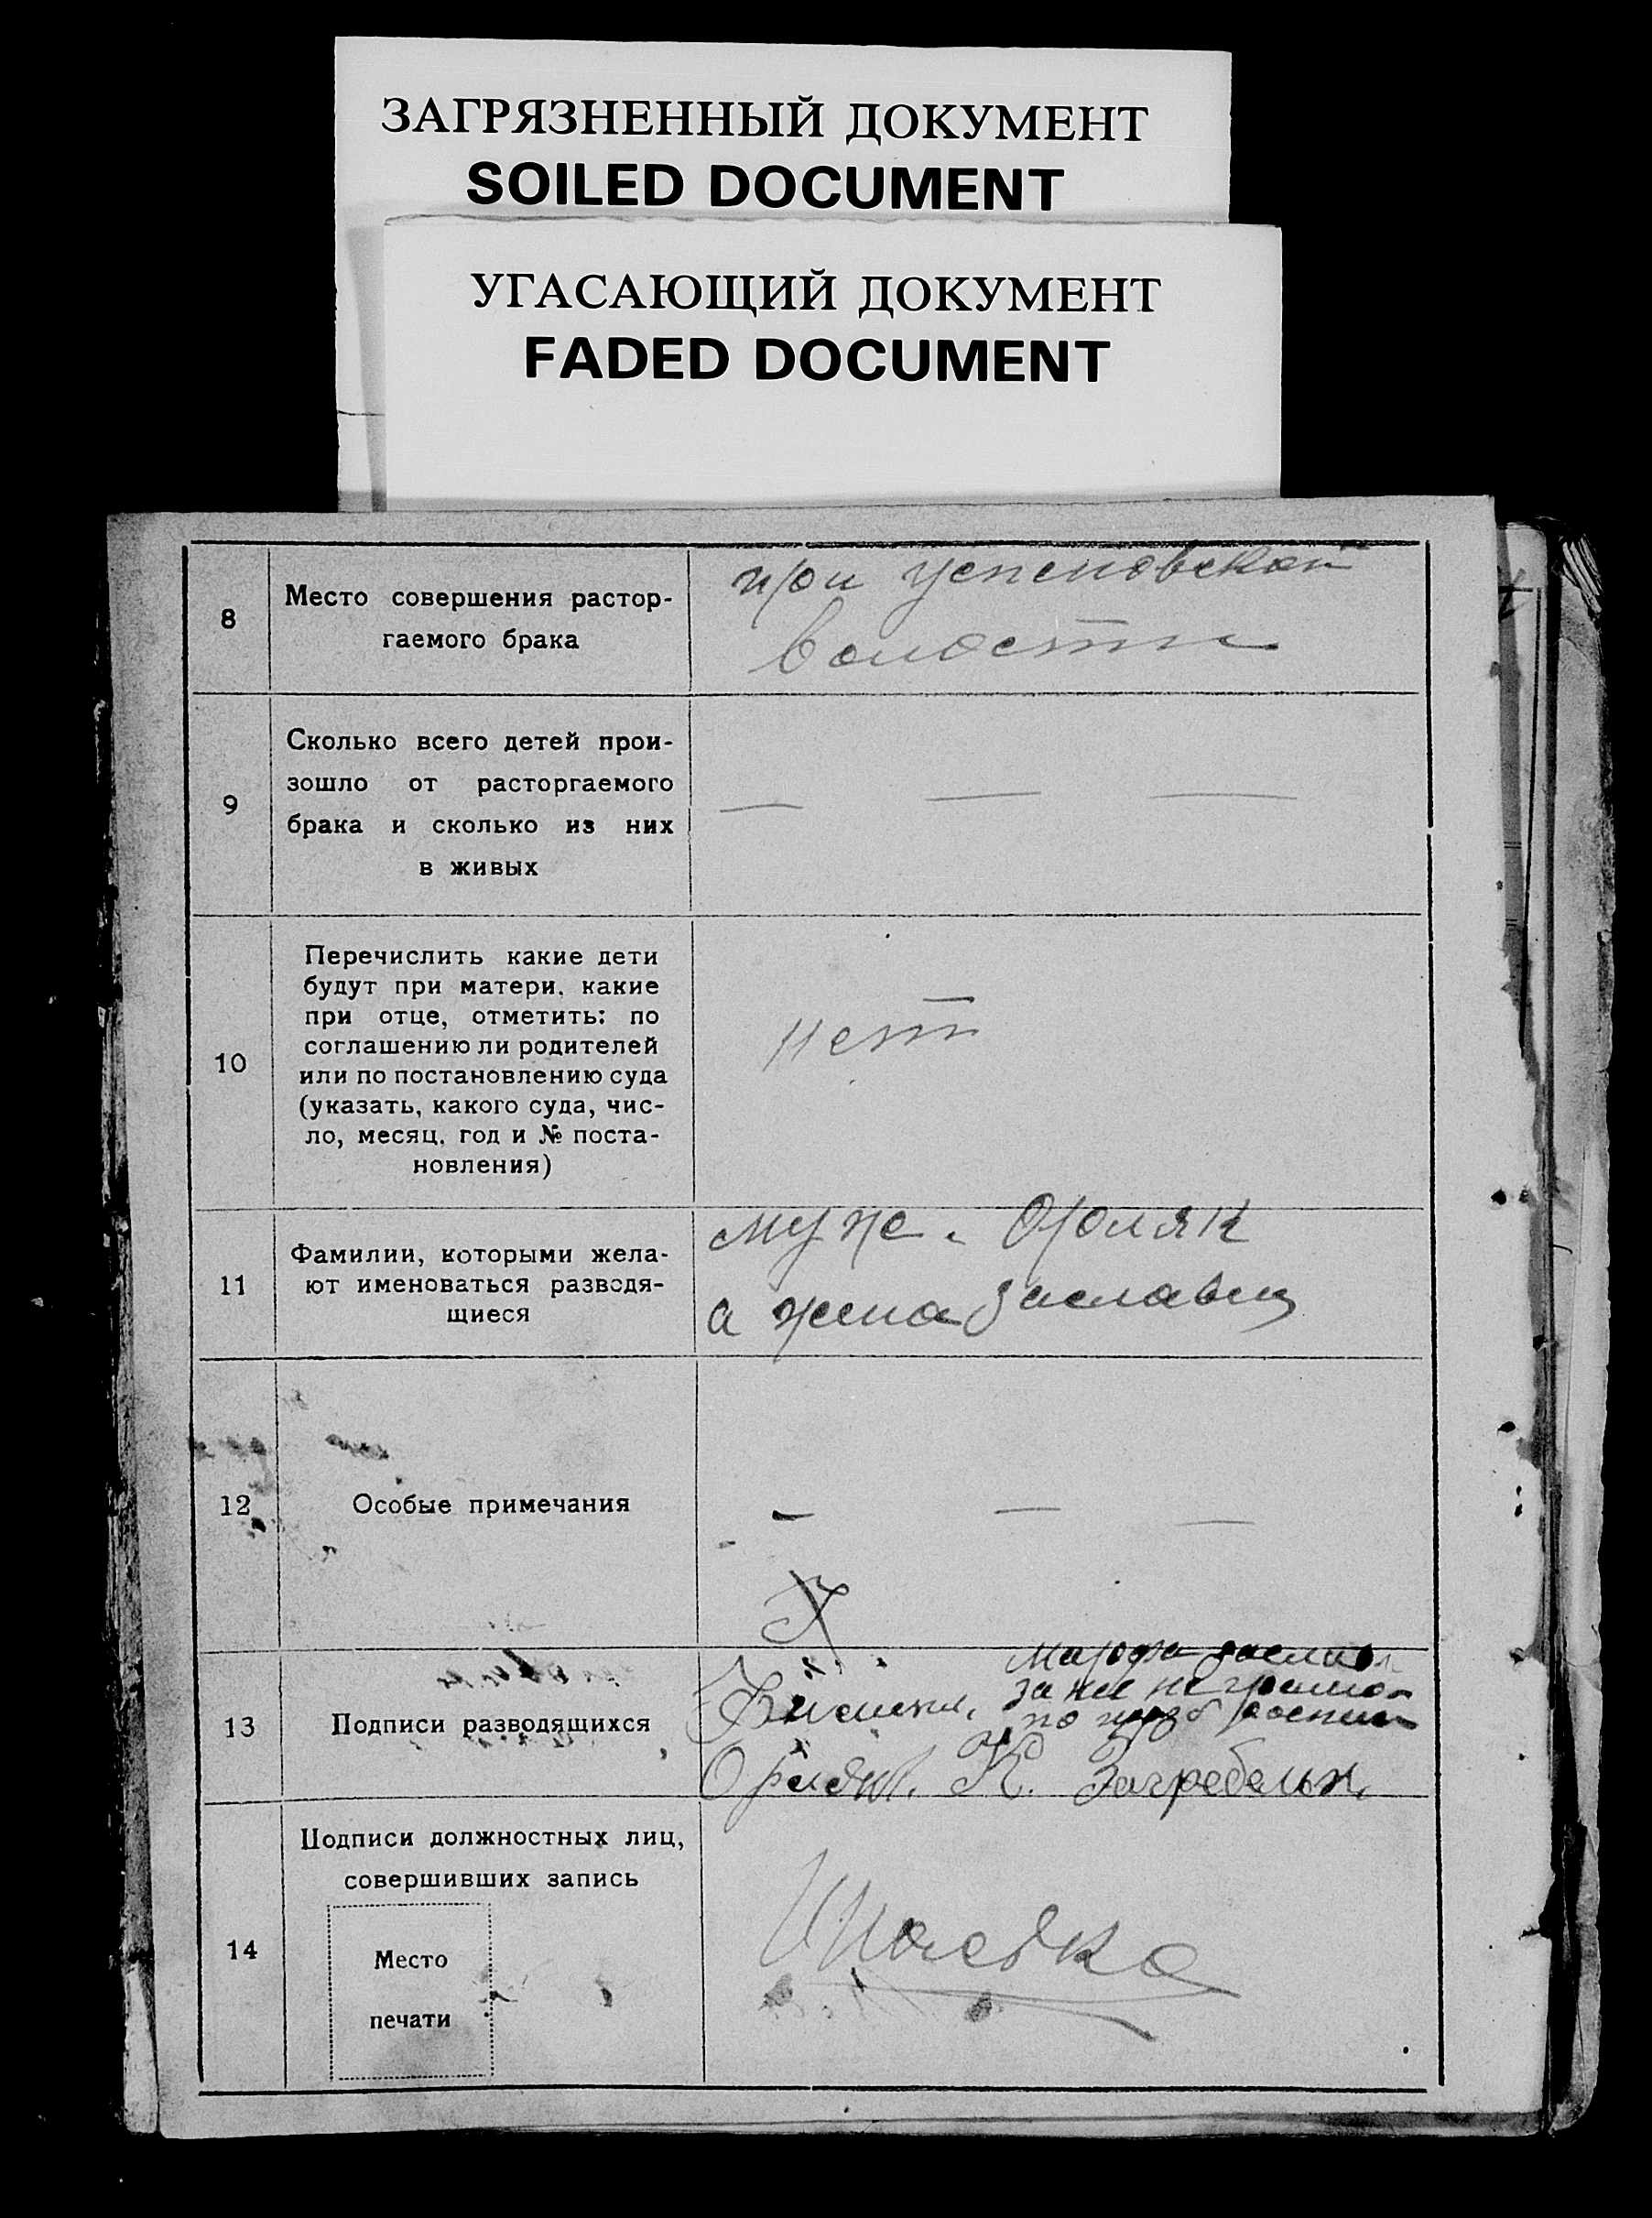 ЗАГРЯЗНЕННЫЙ ДОКУМЕНТ
SOILED DOCUMENT
УГАСАЮЩИЙ ДОКУМЕНТ
FADED DOCUMENT
8
Место совершения растор-
гаемого брака
при успеновской
волости
9
Сколько всего детей прои-
зошло от расторгаемого
брака и сколько из них
в живых
— — —
10
Перечислить какие дети
будут при матери, какие
при отце, отметить: по
соглашению ли родителей
или по постановлению суда
(указать, какого суда, чис-
ло, месяц, год и № поста-
новления)
нет
11
Фамилии, которыми жела-
ют именоваться разводя-
щиеся
муже. Орляк
а жена
12
Особые примечания
— — —
13
Подписи разводящихся
Марфа
за не
по
К.
14
Подписи должностных лиц,
совершивших запись
Место
печати